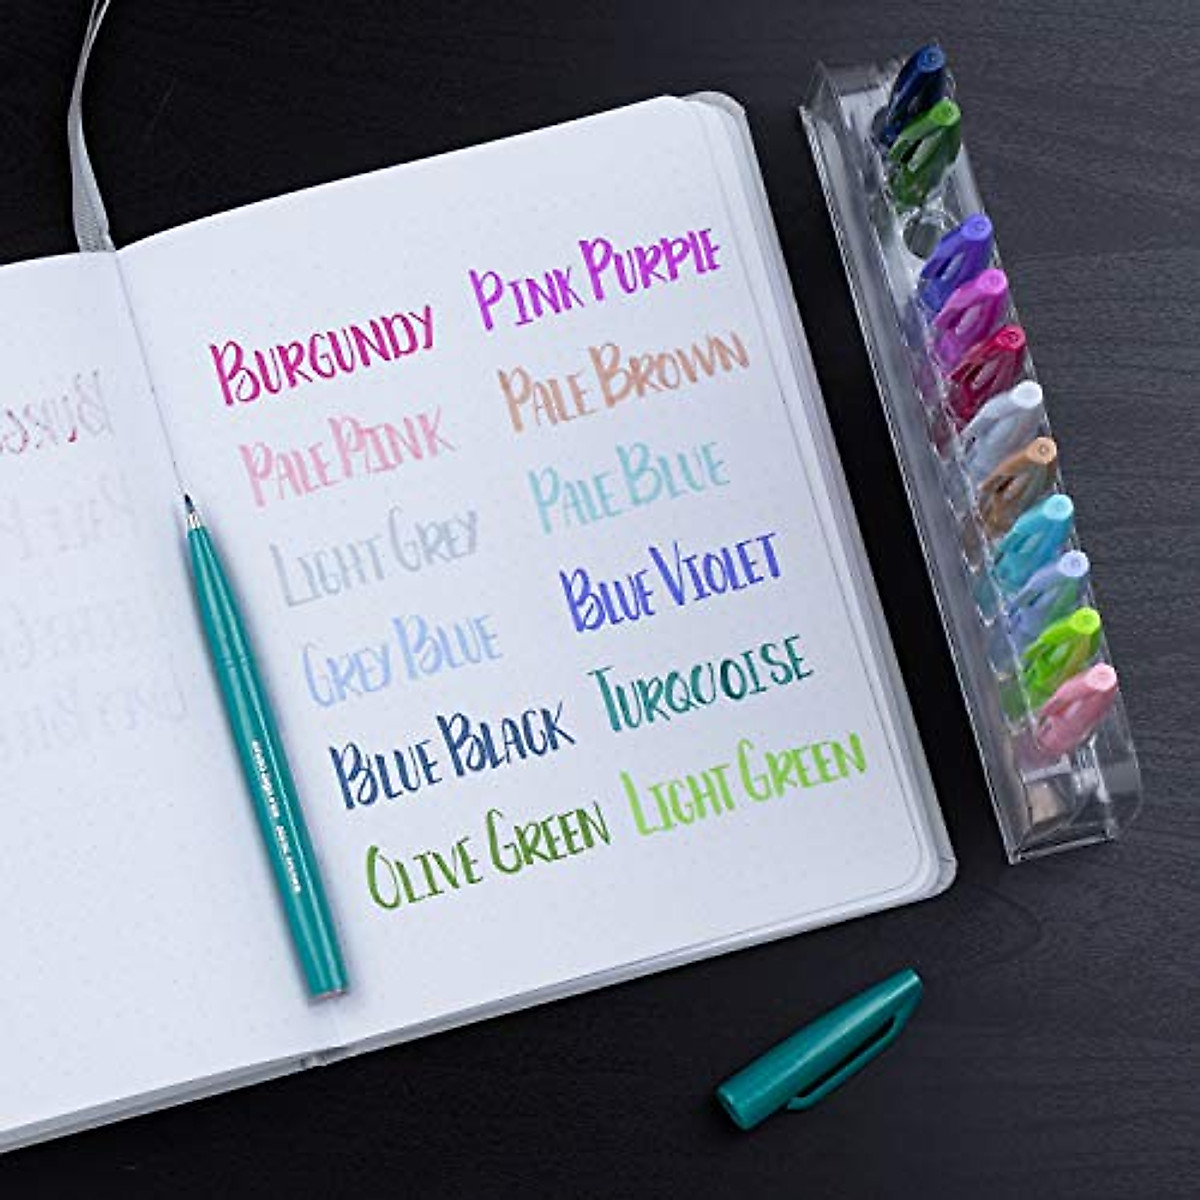 BURGUNDY PINK PURPLE
PALE PINK PALE BROWN
LIGHT GREY PALE BLUE
GREY BLUE BLUE VIOLET
BLUE BLACK TURQUOISE
OLIVE GREEN LIGHT GREEN